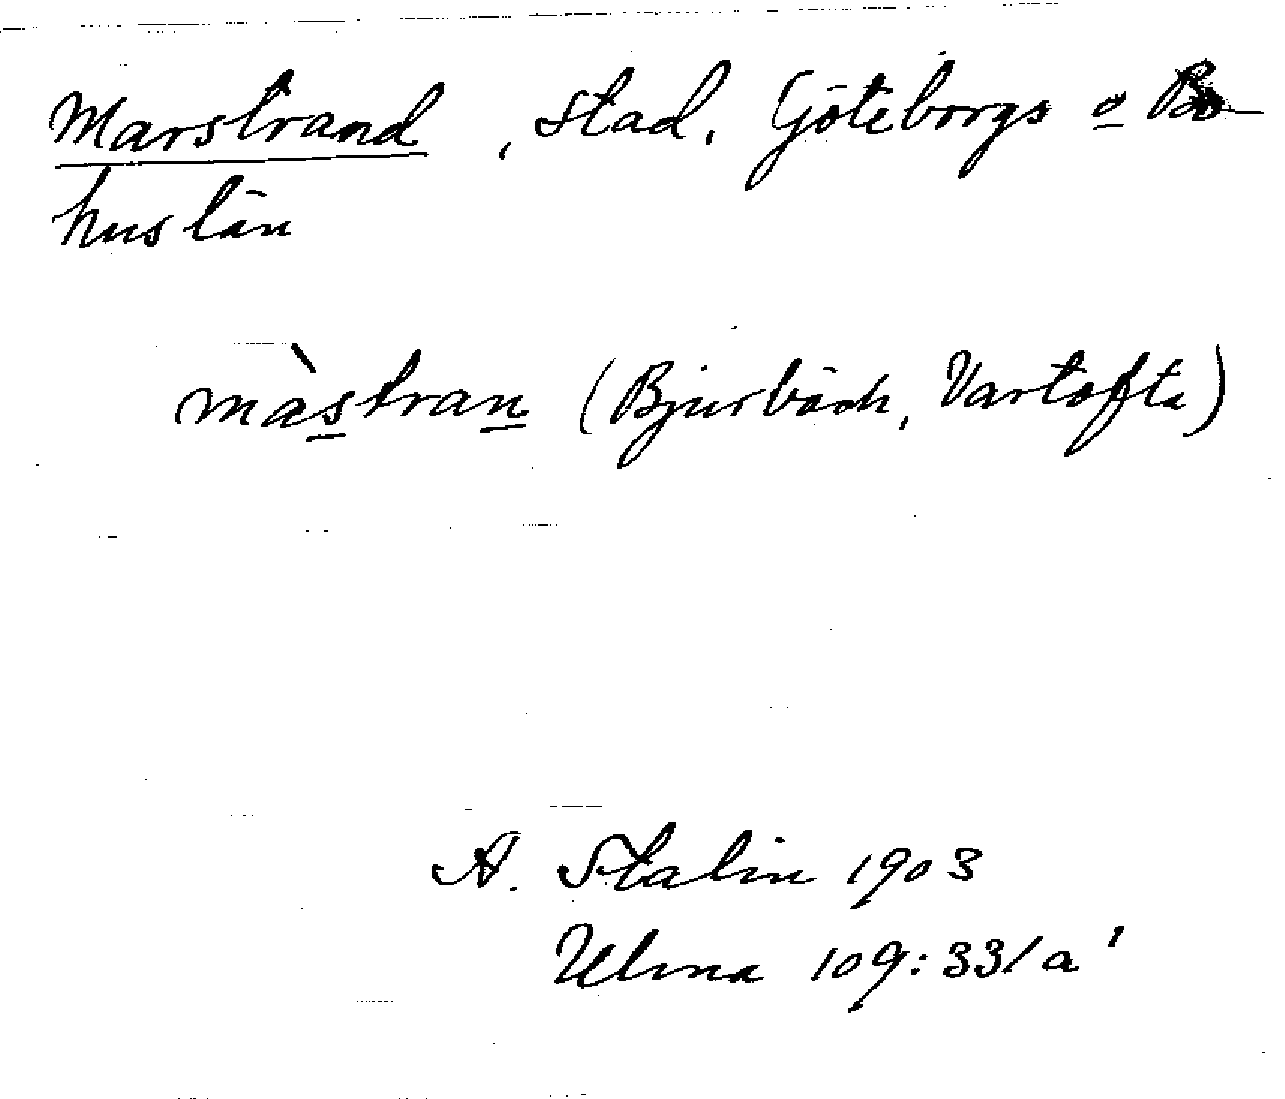 Marstrand, Stad, Göteborgs o Bo-
huslän
màstran (Bjurbäck, Vartofta)
A. Stalin 1903
Ulma 109:331a'